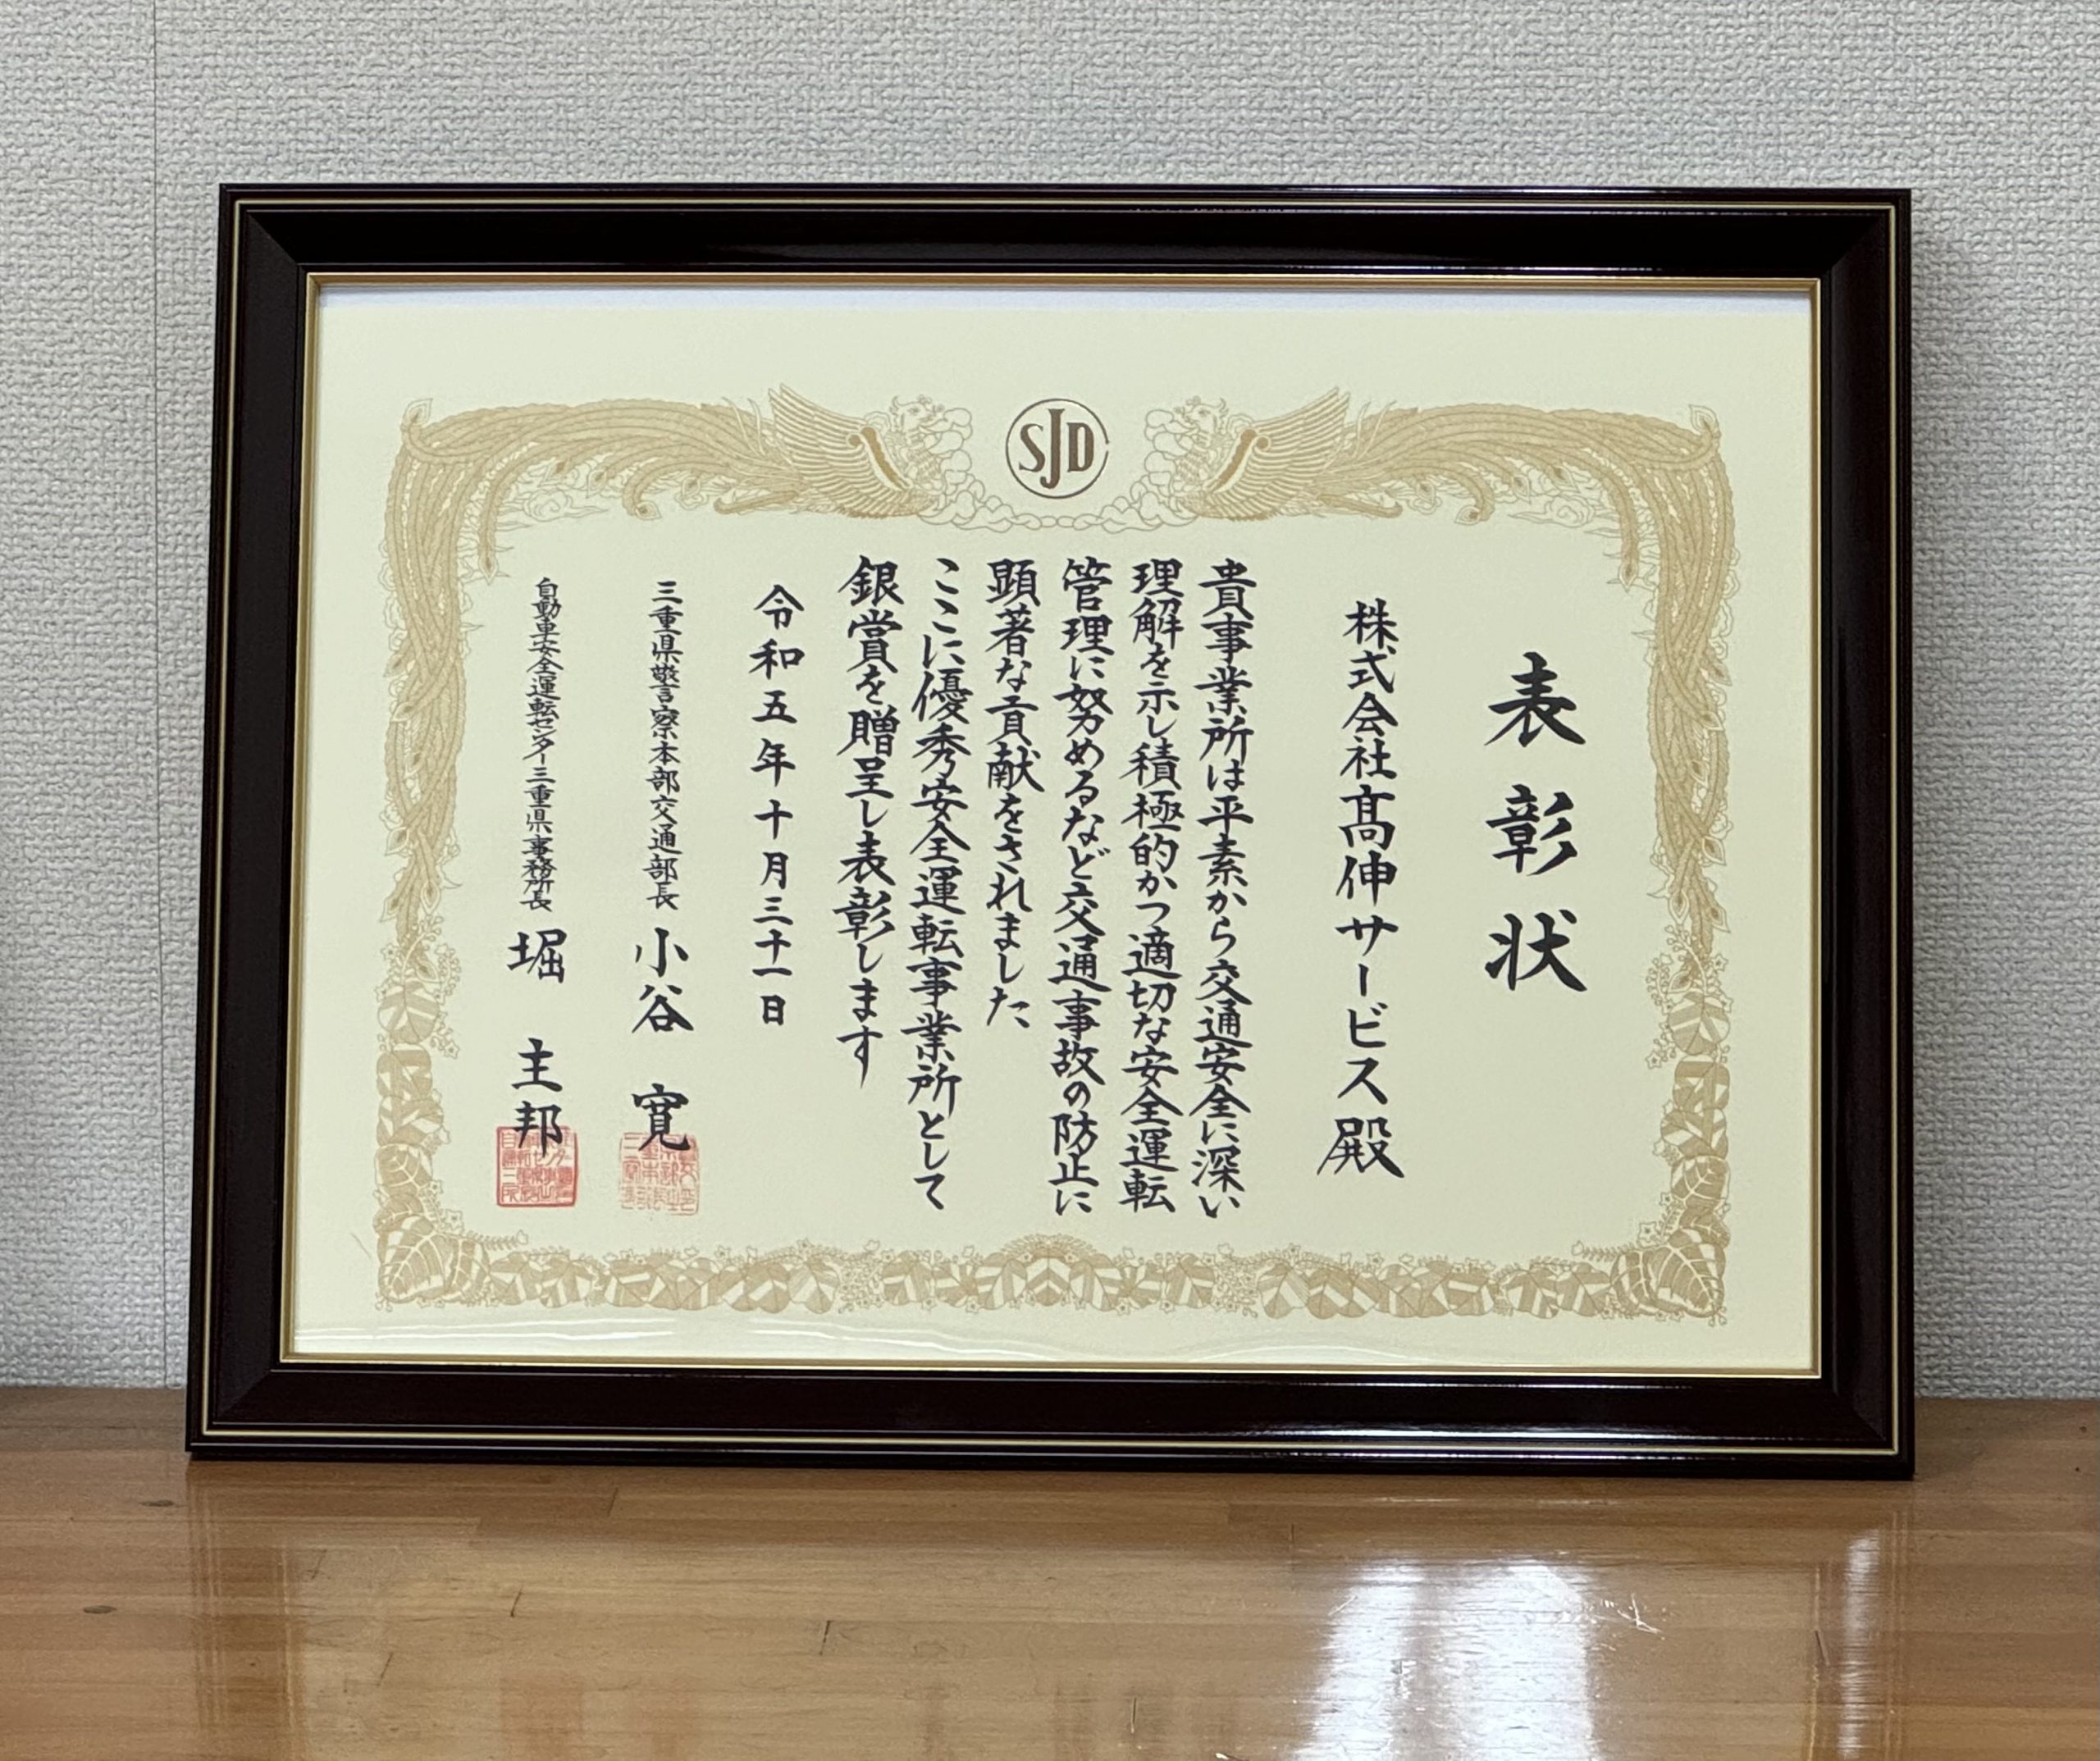 SJD
表彰状
株式会社髙伸サービス殿
貴事業所は平素から交通安全に深い
理解を示し積極的かつ適切な安全運転
管理に努めるなど交通事故の防止に
顕著な貢献をされました
ここに優秀安全運転事業所として
銀賞を贈呈し表彰します
令和五年十月三十一日
三重県警察本部交通部長 小谷 寛
自動車安全運転センター三重県事務所長 堀 主邦